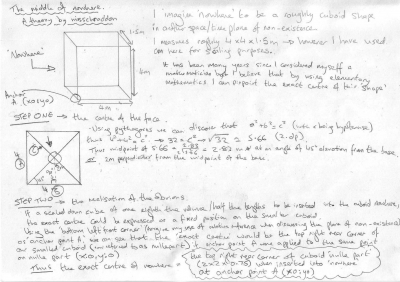 The middle of nowhere.
A theory by misschroddon
"Nowhere"
1.5m
4m
4m
Anchor
A (x0,y0)
I imagine 'nowhere' to be a roughly cuboid shape
in another space/time plane of non-existence.
I measures roughly 4x4x1.5m → however I have used
cm here for scaling purposes.
It has been many years since I considered myself a
mathematician but I believe that by using elementary
mathematics I can pinpoint the exact centre of this 'shape'
STEP ONE → the centre of the face.
Using pythagoras we can discover that a²+b²=c² (with c being hypotenuse)
thus 4²+4²=c² → 32=c² → √32 ≈ 5.66 (2.dp)
Thus midpoint of 5.66 = 2.83 m at an angle of 45° elevation from the base.
2m perpendicular from the midpoint of the base.
STEP TWO → the realisation of the
If a scaled down cube of one eighth the volume (half the lengths) to be inserted into the cuboid nowhere,
the exact centre could be expressed as a fixed position on the smaller cuboid
Using the bottom left front corner (forgive my use of when discussing the plane of non-existence)
as anchor point A, we can see that the exact centre would be the top right near corner of
our smaller cuboid (introduced as nullie part) if anchor point A were applied to the same point
on nullie part (x0,y0)
Thus the exact centre of nowhere =
the top right near corner of cuboid nullie part
(2x2x0.75) when inserted into nowhere
at anchor point A (x0,y0)